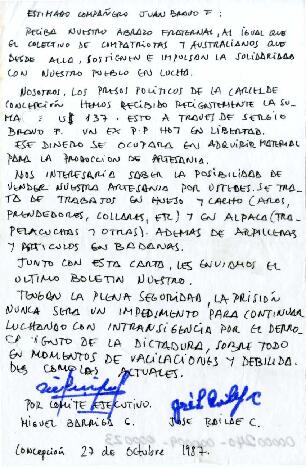 ESTIMADO COMPAÑERO JUAN BRAVO F:
RECIBA NUESTRO ABRAZO FRATERNAL, AL IGUAL QUE
EL COLECTIVO DE COMPATRIOTAS Y AUSTRALIANOS QUE
DESDE ALLA, SOSTIENEN E IMPULSAN LA SOLIDARIDAD
CON NUESTRO PUEBLO EN LUCHA.
NOSOTROS, LOS PRESOS POLITICOS DE LA CARCEL DE
CONCEPCION HEMOS RECIBIDO RECIENTEMENTE LA SU
MA : U$ 137. ESTO A TRAVES DE SERGIO
BRAVO F. UN EX P.P HOY EN LIBERTAD.
ESE DINERO SE OCUPARA EN ADQUIRIR MATERIAL
PARA LA PRODUCCION DE ARTESANIA.
NOS INTERESARIA SABER LA POSIBILIDAD DE
VENDER NUESTRA ARTESANIA POR USTEDES. SE TRA
TA DE TRABAJOS EN HUESO Y CACHO (AROS,
PRENDEDORES, COLLARES, ETC) Y EN ALPACA (TRA-
PELACUCHAS Y OTRAS). ADEMAS DE ARPILLERAS
Y ARTICULOS EN BADANAS.
JUNTO CON ESTA CARTA, LES ENVIAMOS EL
ULTIMO BOLETIN NUESTRO.
TENGAN LA PLENA SEGURIDAD, LA PRISION
NUNCA SERA UN IMPEDIMENTO PARA CONTINUAR
LUCHANDO CON INTRANSIGENCIA POR EL DERRO-
CAMIENTO DE LA DICTADURA, SOBRE TODO
EN MOMENTOS DE VACILACIONES Y DEBILIDA-
DES COMO LAS ACTUALES.
POR COMITE EJECUTIVO.
MIGUEL BARRIGA C. JOSE
Concepción 27 de octubre 1987.